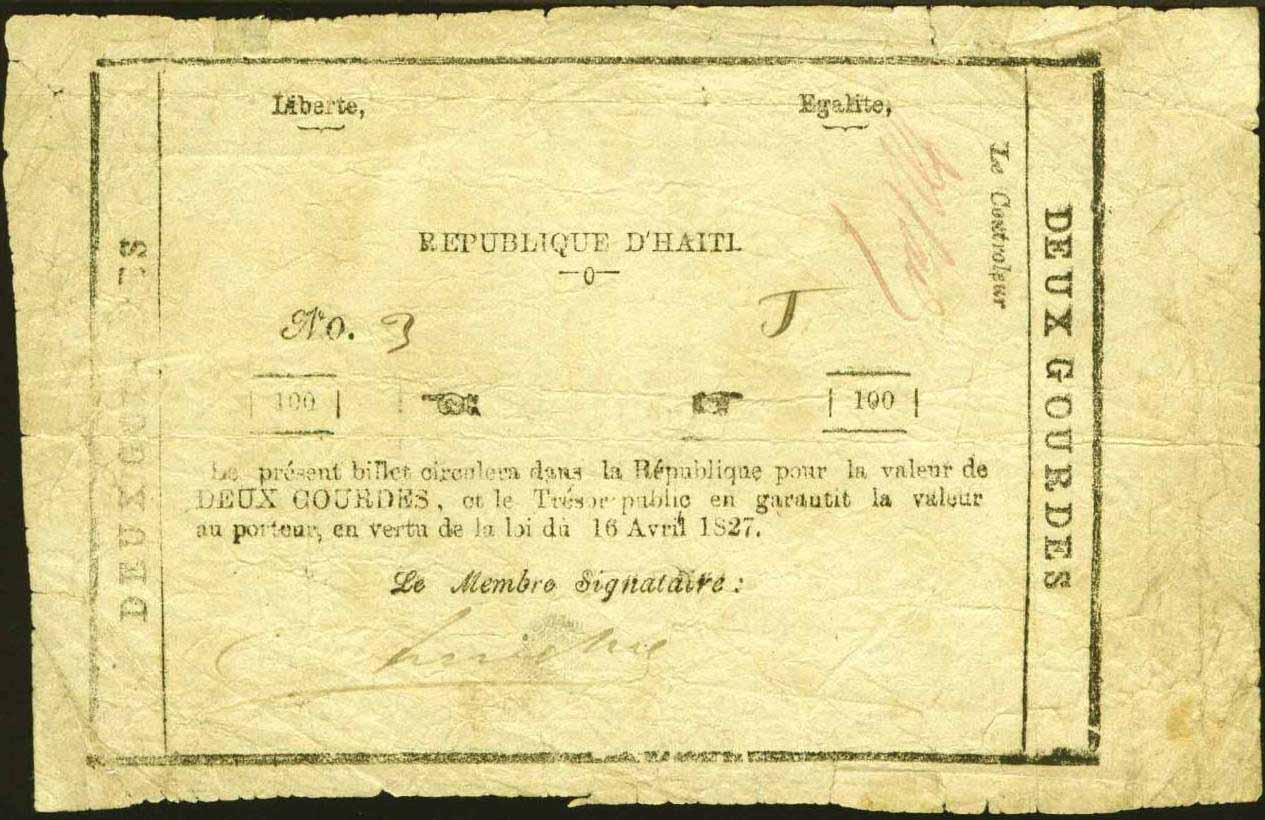 Liberte, Egalite,
REPUBLIQUE D'HAITI.
—0—
No. 3 T
100 100
Le présent billet circulera dans la République pour la valeur de
DEUX GOURDES, et le Trésor public en garantit la valeur
au porteur, en vertu de la loi du 16 Avril 1827.
Le Membre Signataire:
DEUX GOURDES
Le Controleur
DEUX GOURDES